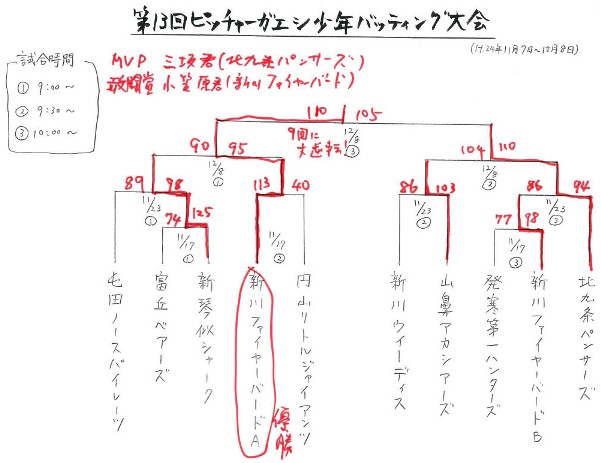 第13回ピッチャーガエシ少年バッティング大会
(H.24年11月7日~12月8日)
試合時間
① 9:00~
② 9:30~
③ 10:00~
MVP 三坂君(北九条パンサーズ)
敢闘賞 小笠原君(新川ファイヤーバード)
110 105
9回に
大逆転!
12/8
③
90 95
12/8
①
104 110
12/8
③
89 98
11/23
①
113 40
11/17
②
86 103
11/23
②
86 94
11/23
③
74 125
11/17
①
77 98
11/17
③
屯田ノースパイレーツ
富丘ベアーズ
新琴似シャーク
新川ファイヤーバードA
優勝
円山リトルジャイアンツ
新川ウィーディス
山鼻アカシアーズ
発寒第一ハンターズ
新川ファイヤーバードB
北九条パンサーズ